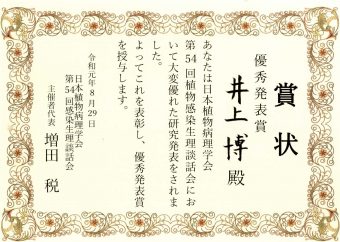 賞状
優秀発表賞
井上博殿
あなたは日本植物病理学会
第54回植物感染生理談話会にお
いて大変優れた研究発表をされま
した。
よってこれを表彰し、優秀発表賞
を授与します。
令和元年8月29日
日本植物病理学会
第54回感染生理談話会
主催者代表 増田 税